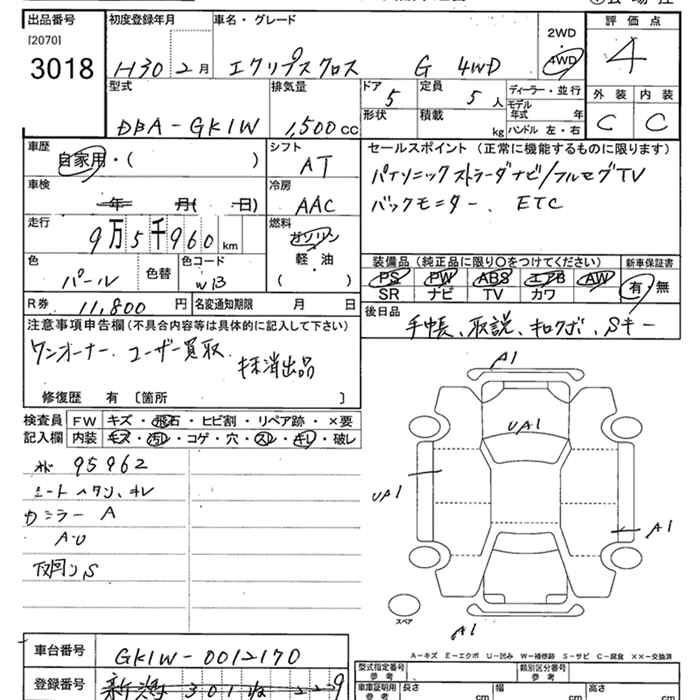 出品番号 初度登録年月 車名・グレード 評価点
[2070]
3018 H30 2月 エクリプスクロス G 4WD 2WD 4WD 4
型式 排気量 ドア 5 定員 5人 ディーラー・並行 外装 内装
DBA-GK1W 1,500cc 形状 積載 kg モデル年式 年 ハンドル 左・右 C C
車歴 シフト セールスポイント(正常に機能するものに限ります)
自家用・( ) AT パナソニックストラーダナビ/フルセグTV
車検 冷房 バックモニター、ETC
年 月( 日) AAC
走行 燃料
9万5千960km ガソリン
軽・油
( )
装備品(純正品に限り○をつけてください) 新車保証書
色 色替 色コード PS PW ABS エアB AW 有・無
パール W13 SR ナビ TV カワ
R券 11,800円 名変通知期限 月 日 後日品
手帳、取説、キロクボ、Sキー
注意事項申告欄(不具合内容等は具体的に記入して下さい)
ワンオーナー、ユーザー買取、
抹消出品
修復歴 有〔箇所 〕
検査員 FW キズ・飛石・ヒビ割・リペア跡・×要
記入欄 内装 キズ・汚レ・コゲ・穴・スレ・キレ・破レ
95962
ミラー A
A・U
下回りS
A1
UA1
UA1
A1
スペア
A1
A-キズ E-エクボ U-凹み W-補修跡 S-サビ C-腐食 ××-交換済
車台番号 GK1W-0012170
登録番号 新潟 301 ね 229
型式指定番号 参考 類別区分番号 参考
車庫証明用 参考 長さ cm 幅 cm 高さ cm